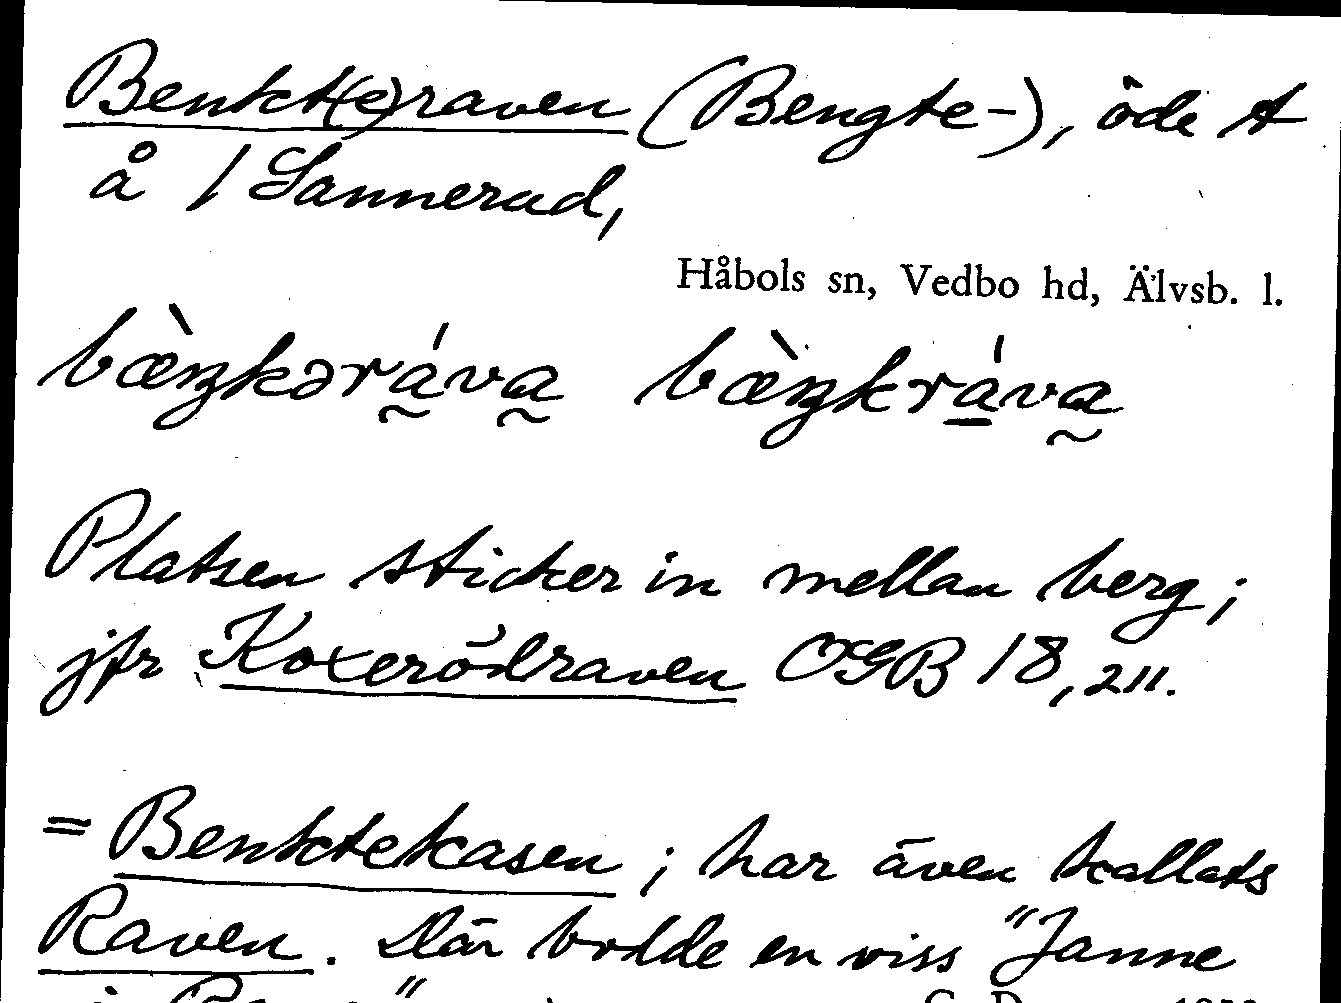 Benkt(e)raven (Bengte-), öde t
å 1 Sannerud,
Håbols sn, Vedbo hd, Älvsb. l.
bæ̀ŋkərá̰va̰ bæ̀ŋkrá̱va̰
Platsen sticker in mellan berg;
jfr Koxerödraven OGB 18, 211.
= Benktekasen; har även kallats
Raven. Där bodde en viss "Janne
i